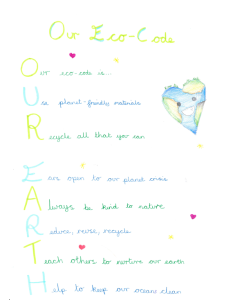 Our Eco-Code
Our eco-code is...
Use planet-friendly materials
Recycle all that you can
Ears are open to our planet crisis
Always be kind to nature
Reduce, reuse, recycle
Teach others to nurture our earth
Help to keep our ocean clean